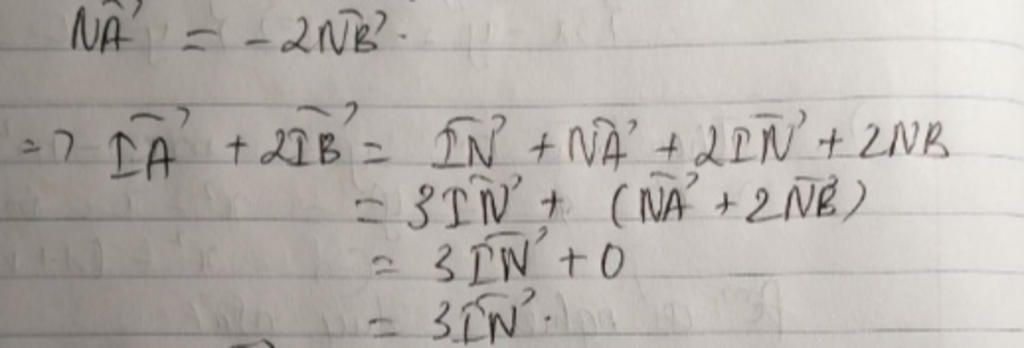 NA⃗ = -2NB⃗.
=> IA⃗ + 2IB⃗ = IN⃗ + NA⃗ + 2IN⃗ + 2NB
= 3IN⃗ + (NA⃗ + 2NB⃗)
= 3IN⃗ + 0
= 3IN⃗.